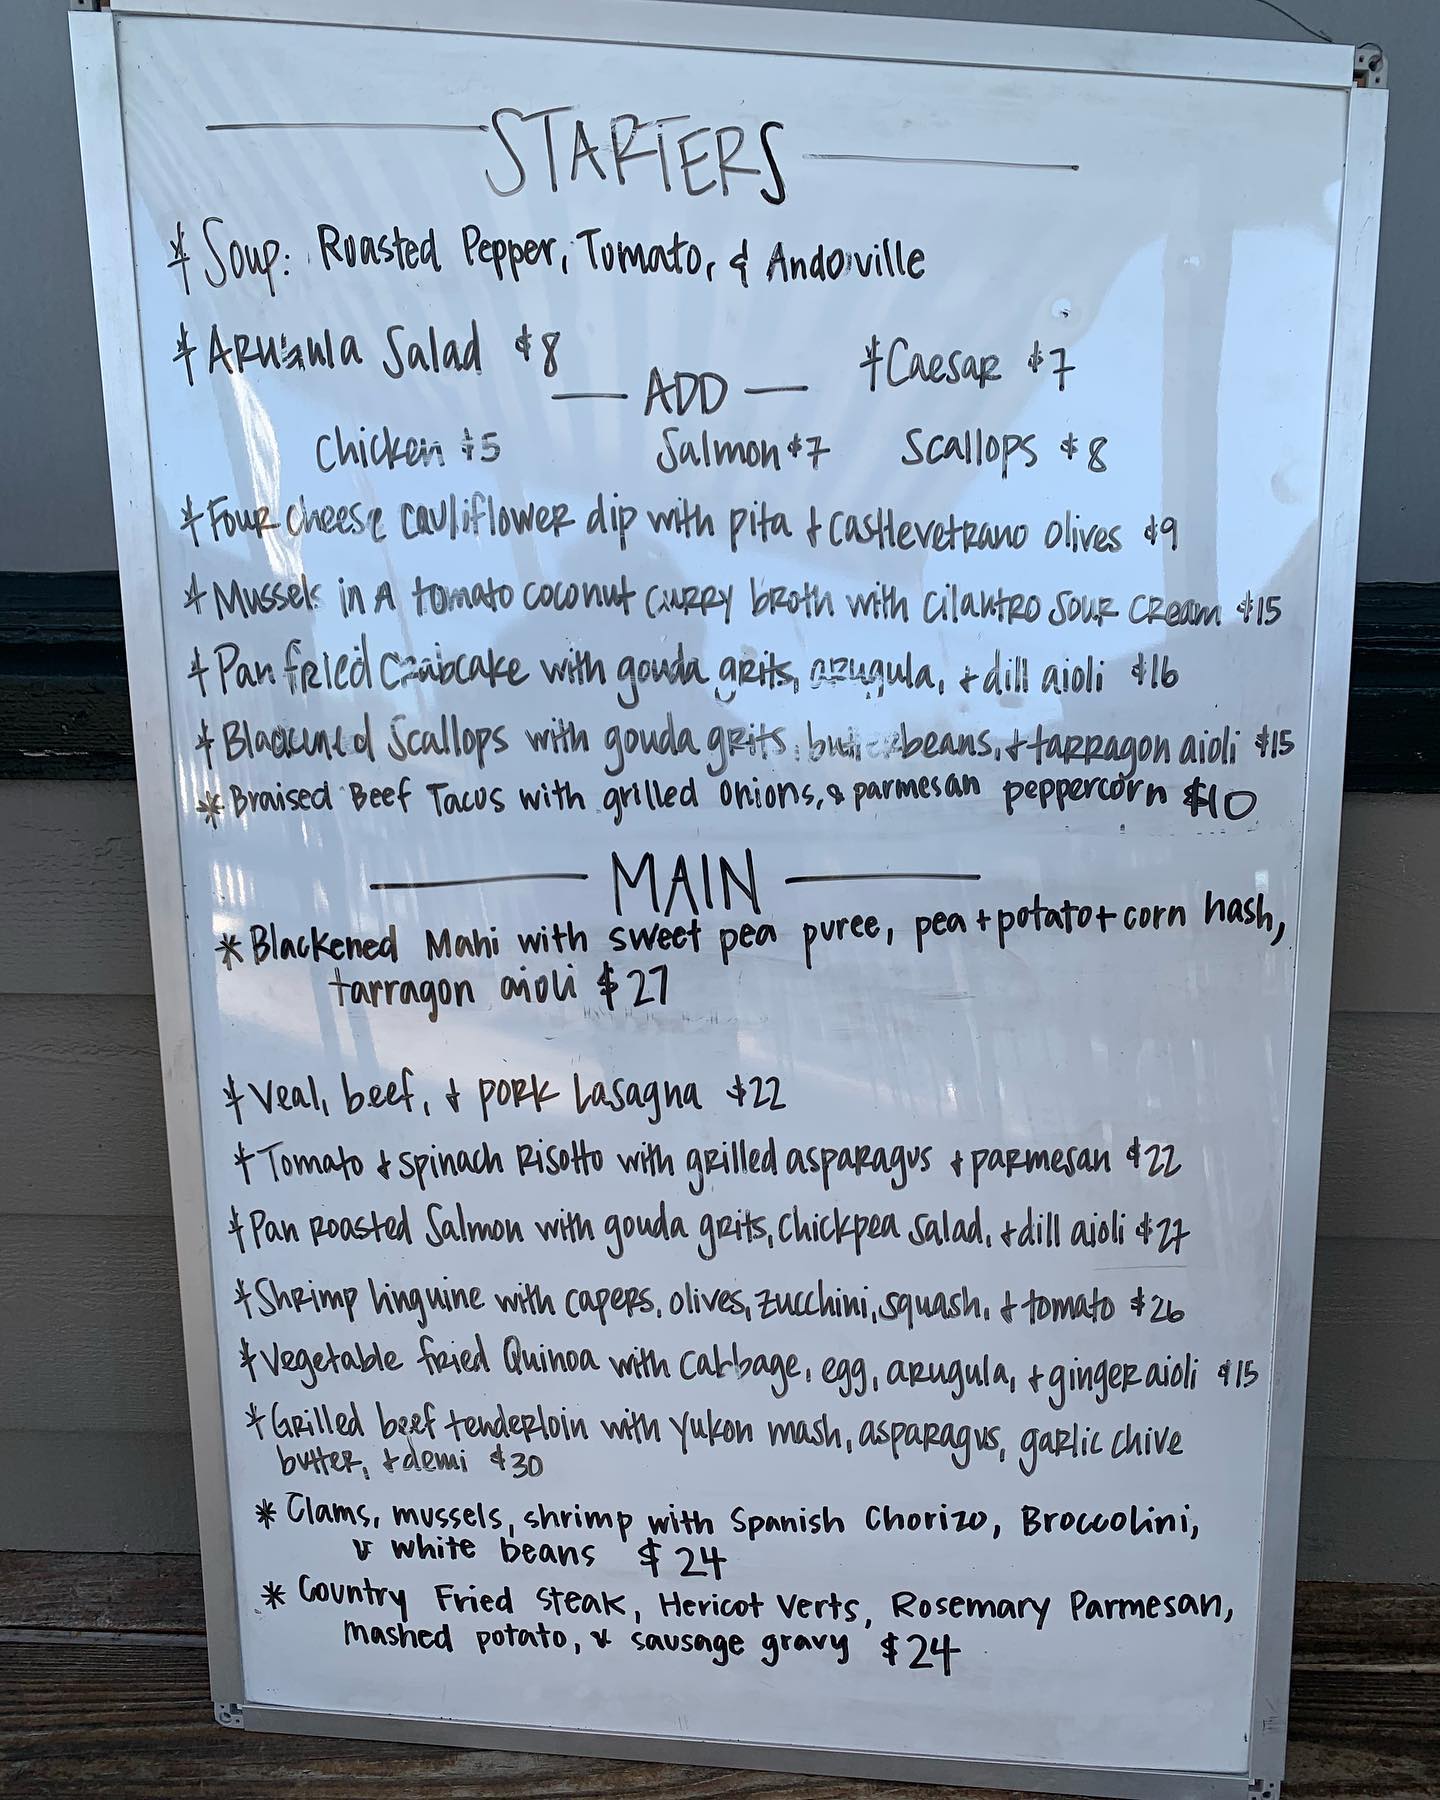 STARTERS
* Soup: Roasted Pepper, Tomato, & Andoville
* Arugula Salad $8 * Caesar $7
— ADD —
Chicken $5 Salmon $7 Scallops $8
* Four cheese cauliflower dip with pita + Castlevetrano olives $9
* Mussels in A tomato coconut curry broth with cilantro sour cream $15
* Pan fried Crabcake with gouda grits, arugula, + dill aioli $16
* Blackened Scallops with gouda grits, butterbeans, + tarragon aioli $15
* Braised Beef Tacos with grilled onions, & parmesan peppercorn $10
MAIN
* Blackened Mahi with sweet pea puree, pea + potato + corn hash,
tarragon aioli $27
* Veal, beef, + pork Lasagna $22
* Tomato + spinach Risotto with grilled asparagus + parmesan $22
* Pan roasted Salmon with gouda grits, chickpea salad, + dill aioli $27
* Shrimp linguine with capers, olives, zucchini, squash, + tomato $26
* Vegetable fried Quinoa with cabbage, egg, arugula, + ginger aioli $15
* Grilled beef tenderloin with yukon mash, asparagus, garlic chive
butter, + demi $30
* Clams, mussels, shrimp with Spanish Chorizo, Broccolini,
& white beans $24
* Country Fried Steak, Hericot Verts, Rosemary Parmesan,
mashed potato, & sausage gravy $24